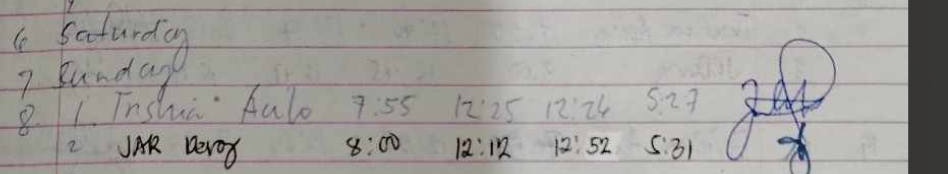 6 Saturday
7 Sunday
8 1. Trishia Aulo 7:55 12:25 12:26 5:27
2 JAR Deroy 8:00 12:12 12:52 5:31